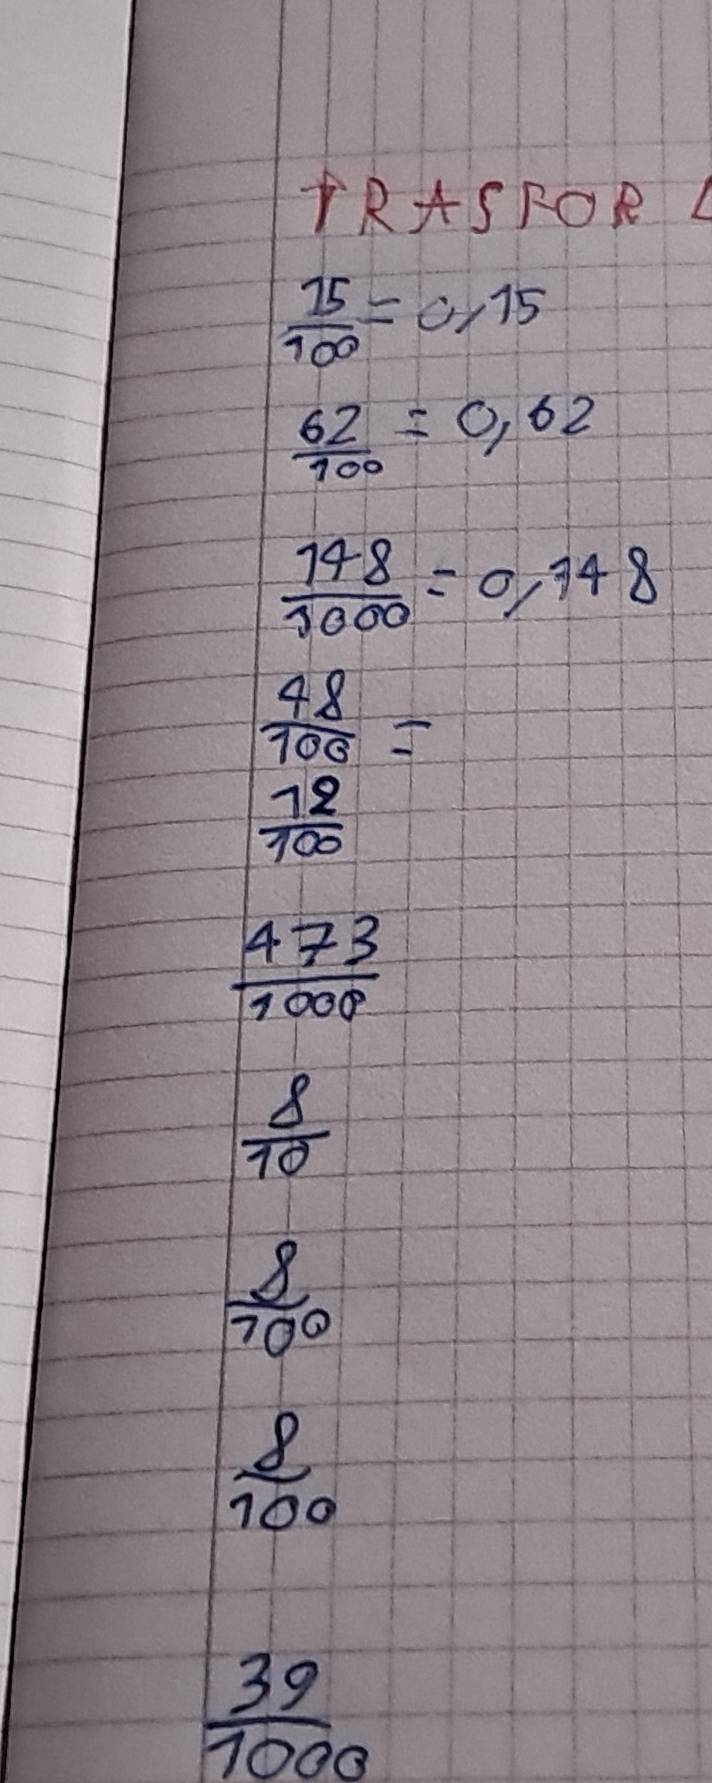 TRASFOR
15/100 = 0,15
62/100 = 0,62
148/1000 = 0,148
48/100 =
12/100
473/1000
8/10
8/100
8/100
39/1000